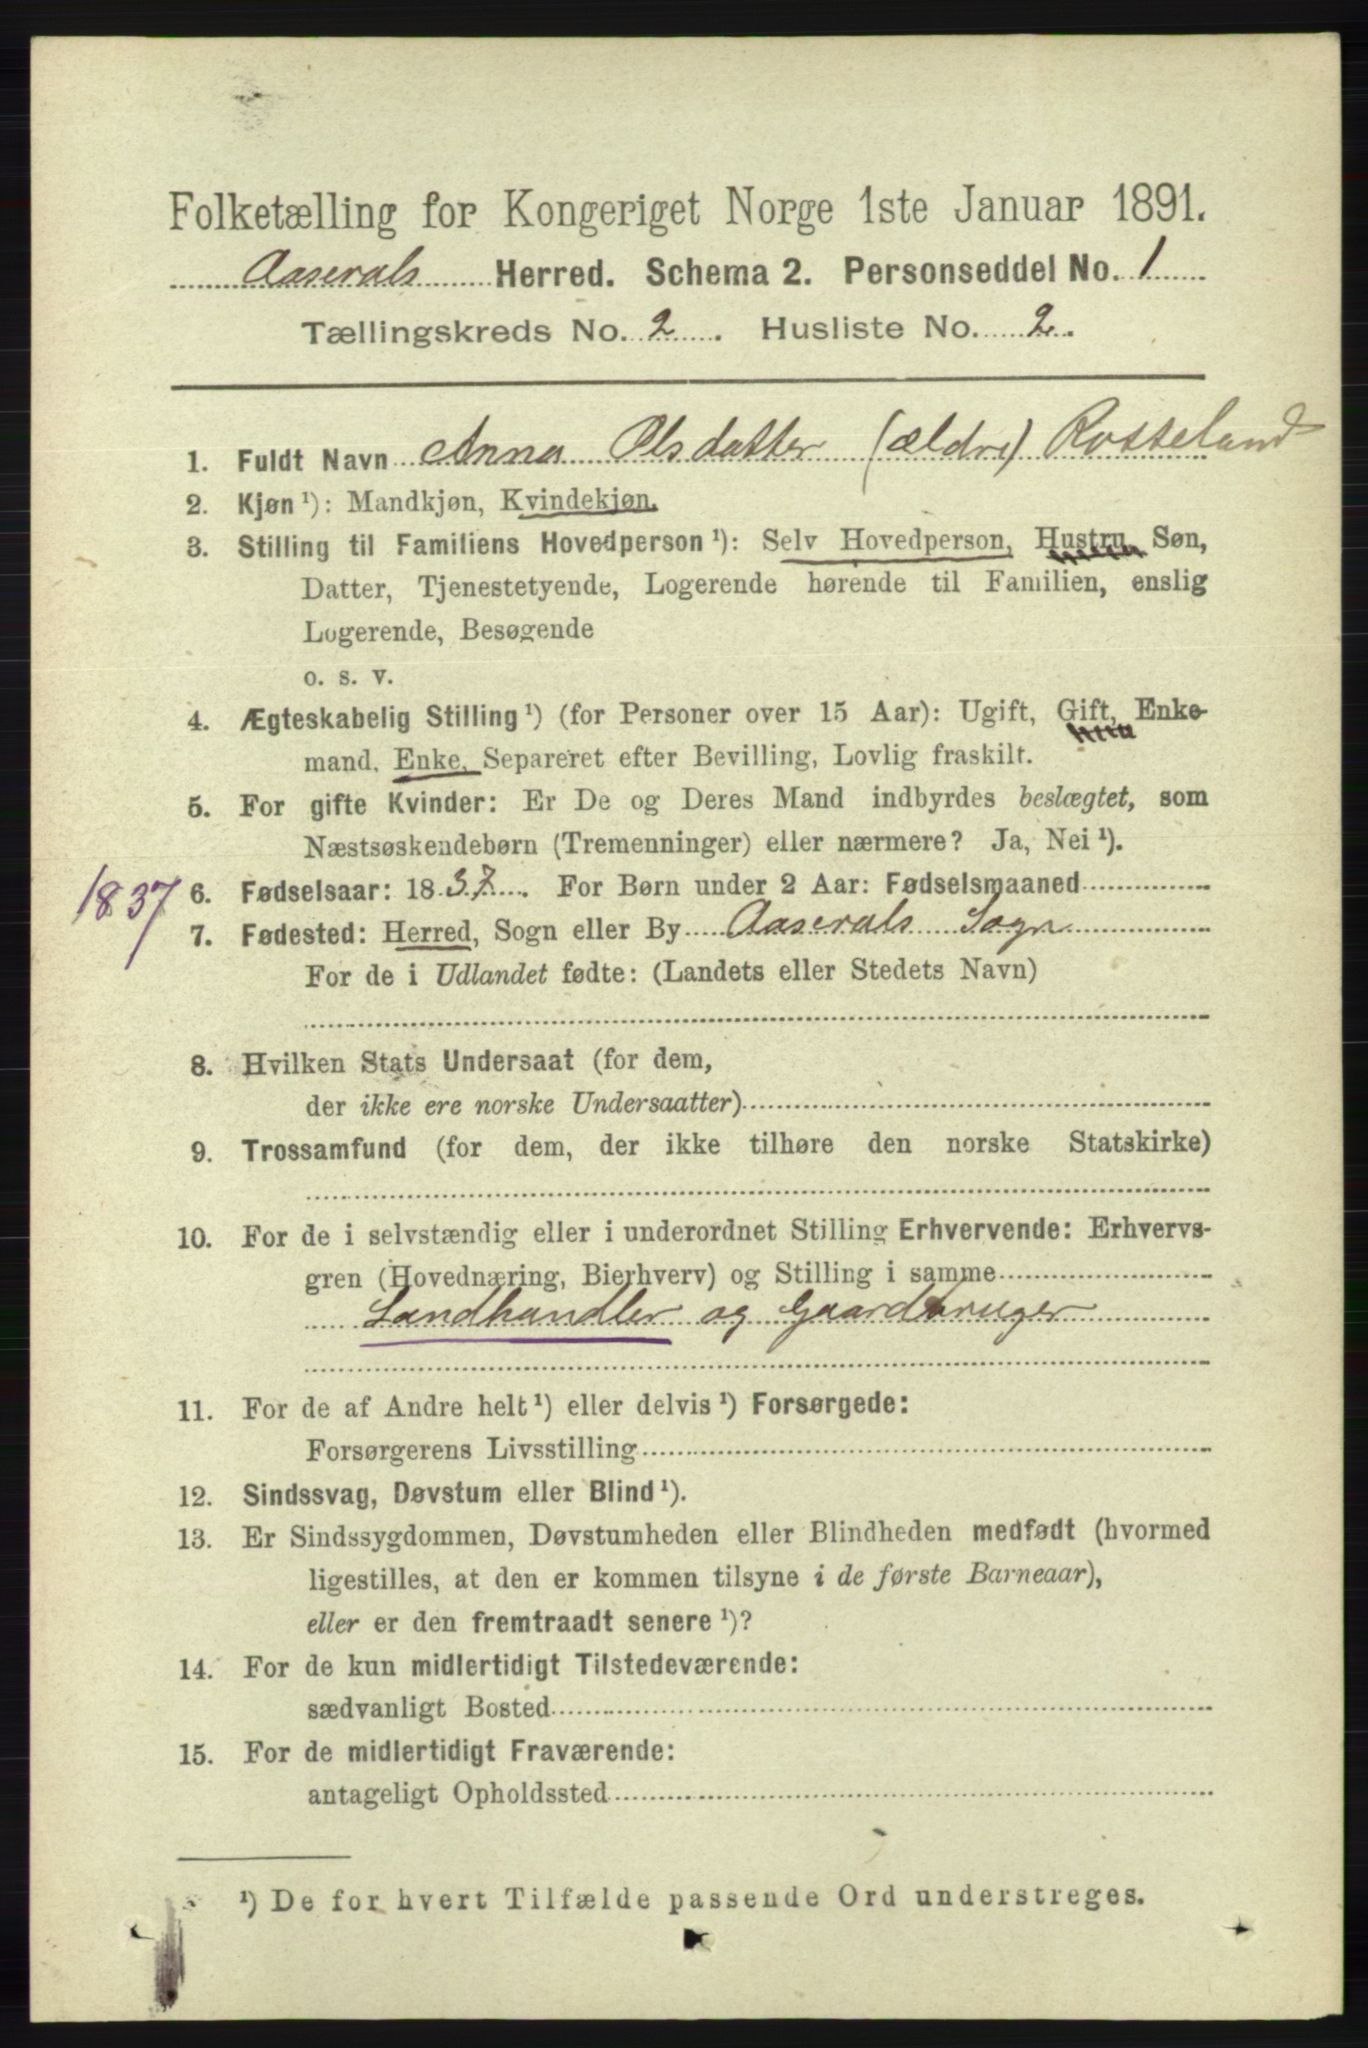 Folketælling for Kongeriget Norge 1ste Januar 1891.
Aaserals Herred. Schema 2. Personseddel No. 1
Tællingskreds No. 2. Husliste No. 2.
1. Fuldt Navn Anna Olsdatter (ældre) Rosseland
2. Kjøn ¹): Mandkjøn, Kvindekjøn.
3. Stilling til Familiens Hovedperson ¹): Selv Hovedperson, Hustru, Søn,
Datter, Tjenestetyende, Logerende hørende til Familien, enslig
Logerende, Besøgende
o. s. v.
4. Ægteskabelig Stilling ¹) (for Personer over 15 Aar): Ugift, Gift, Enke-
mand, Enke, Separeret efter Bevilling, Lovlig fraskilt.
5. For gifte Kvinder: Er De og Deres Mand indbyrdes beslægtet, som
Næstsøskendebørn (Tremenninger) eller nærmere? Ja, Nei ¹).
1837 6. Fødselsaar: 1837. For Børn under 2 Aar: Fødselsmaaned
7. Fødested: Herred, Sogn eller By Aaserals Sogn
For de i Udlandet fødte: (Landets eller Stedets Navn)
8. Hvilken Stats Undersaat (for dem,
der ikke ere norske Undersaatter)
9. Trossamfund (for dem, der ikke tilhøre den norske Statskirke)
10. For de i selvstændig eller i underordnet Stilling Erhvervende: Erhvervs-
gren (Hovednæring, Bierhverv) og Stilling i samme
Landhandler og Gaardbruger
11. For de af Andre helt ¹) eller delvis ¹) Forsørgede:
Forsørgerens Livsstilling
12. Sindssvag, Døvstum eller Blind ¹).
13. Er Sindssygdommen, Døvstumheden eller Blindheden medfødt (hvormed
ligestilles, at den er kommen tilsyne i de første Barneaar),
eller er den fremtraadt senere ¹)?
14. For de kun midlertidigt Tilstedeværende:
sædvanligt Bosted
15. For de midlertidigt Fraværende:
antageligt Opholdssted
¹) De for hvert Tilfælde passende Ord understreges.